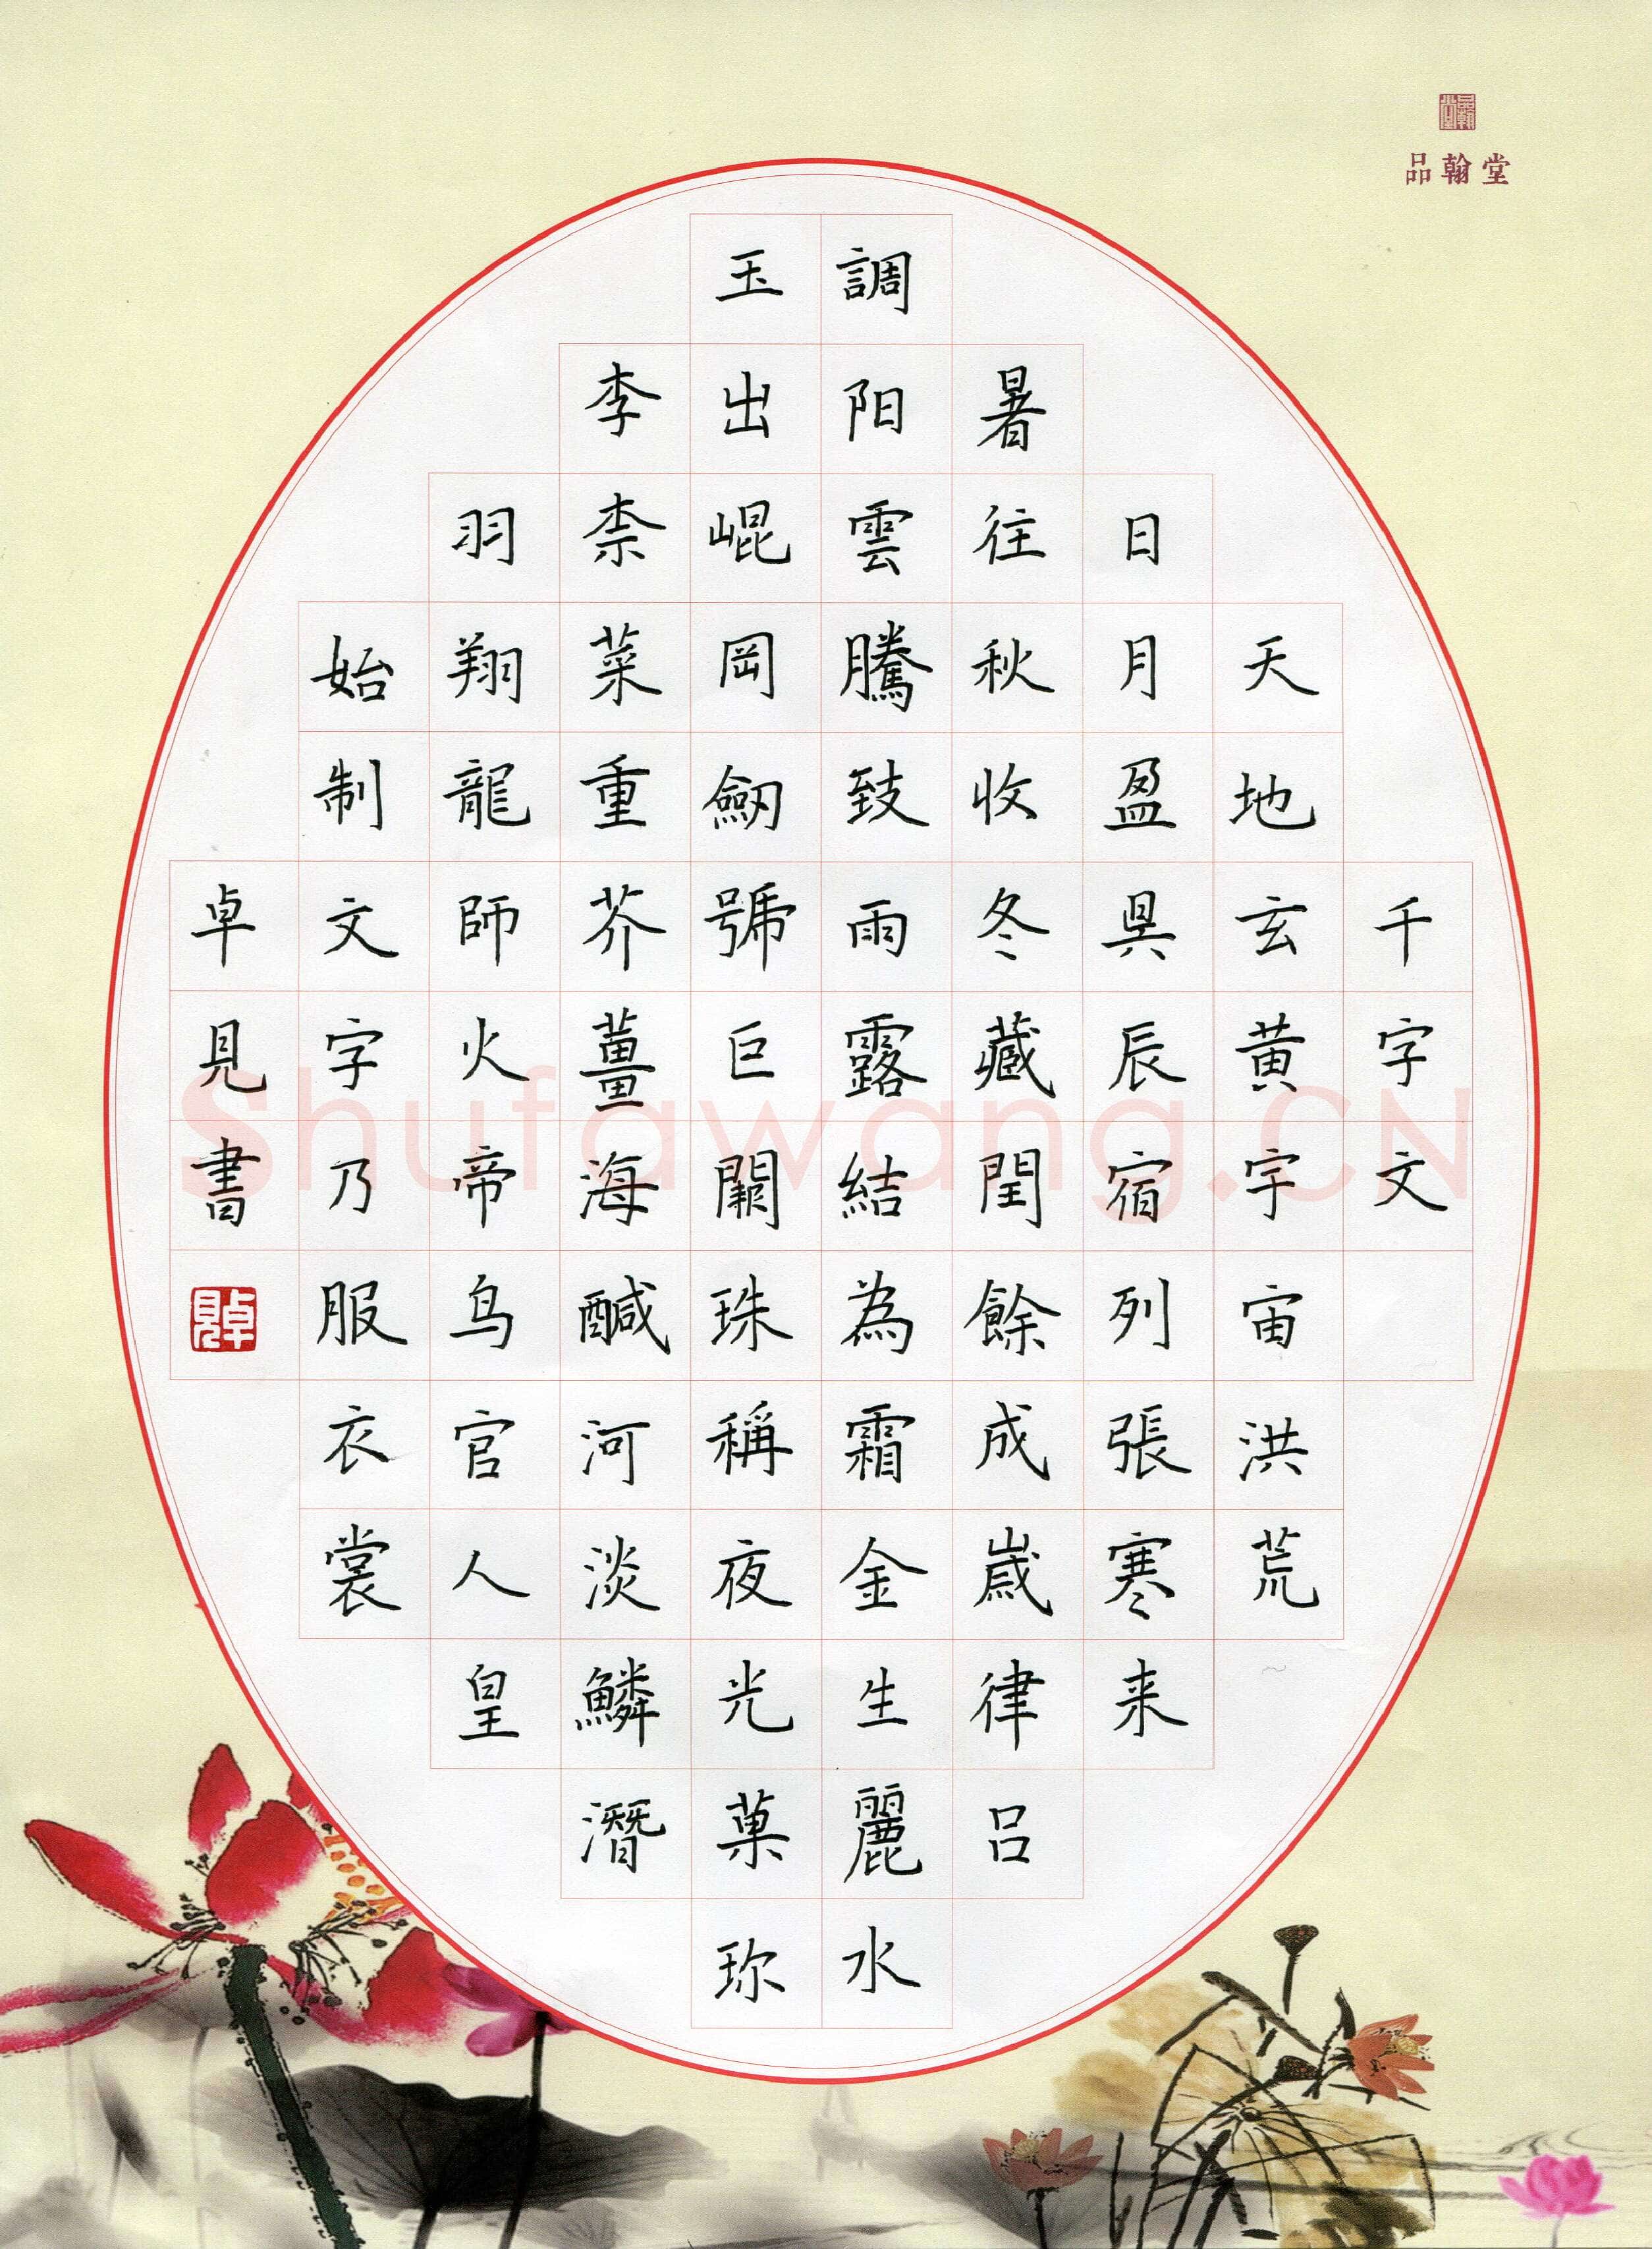 品翰堂
千字文
天地玄黄宇宙洪荒
日月盈昃辰宿列張寒来
暑往秋收冬藏閏餘成歲律呂
調阳雲騰致雨露結為霜金生麗水
玉出崐岡劒號巨闕珠稱夜光菓珎
李柰菜重芥薑海醎河淡鱗潛
羽翔龍師火帝鸟官人皇
始制文字乃服衣裳
卓見書
卓見
Shufawang.CN